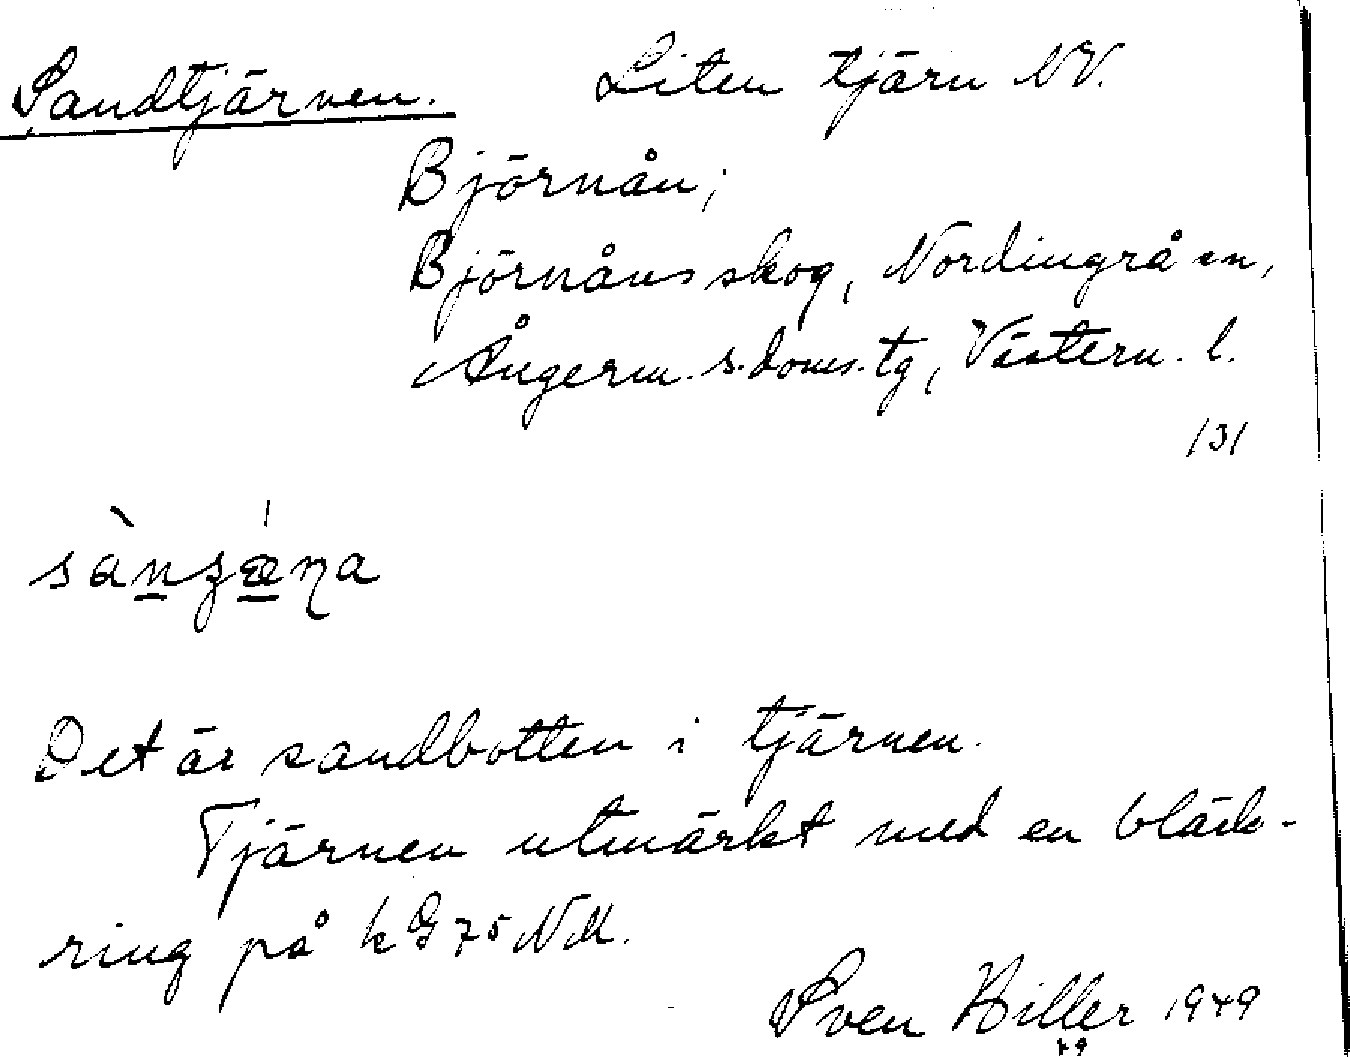 Sandtjärnen. Liten tjärn NV.
Björnån;
Björnåns skog, Nordingrå sn,
Ångerm. s. doms. tg, Västern. l.
131
sànʒǽna
Det är sandbotten i tjärnen.
Tjärnen utmärkt med en bläck-
ring på k G 75 NM.
Sven Hiller 1949